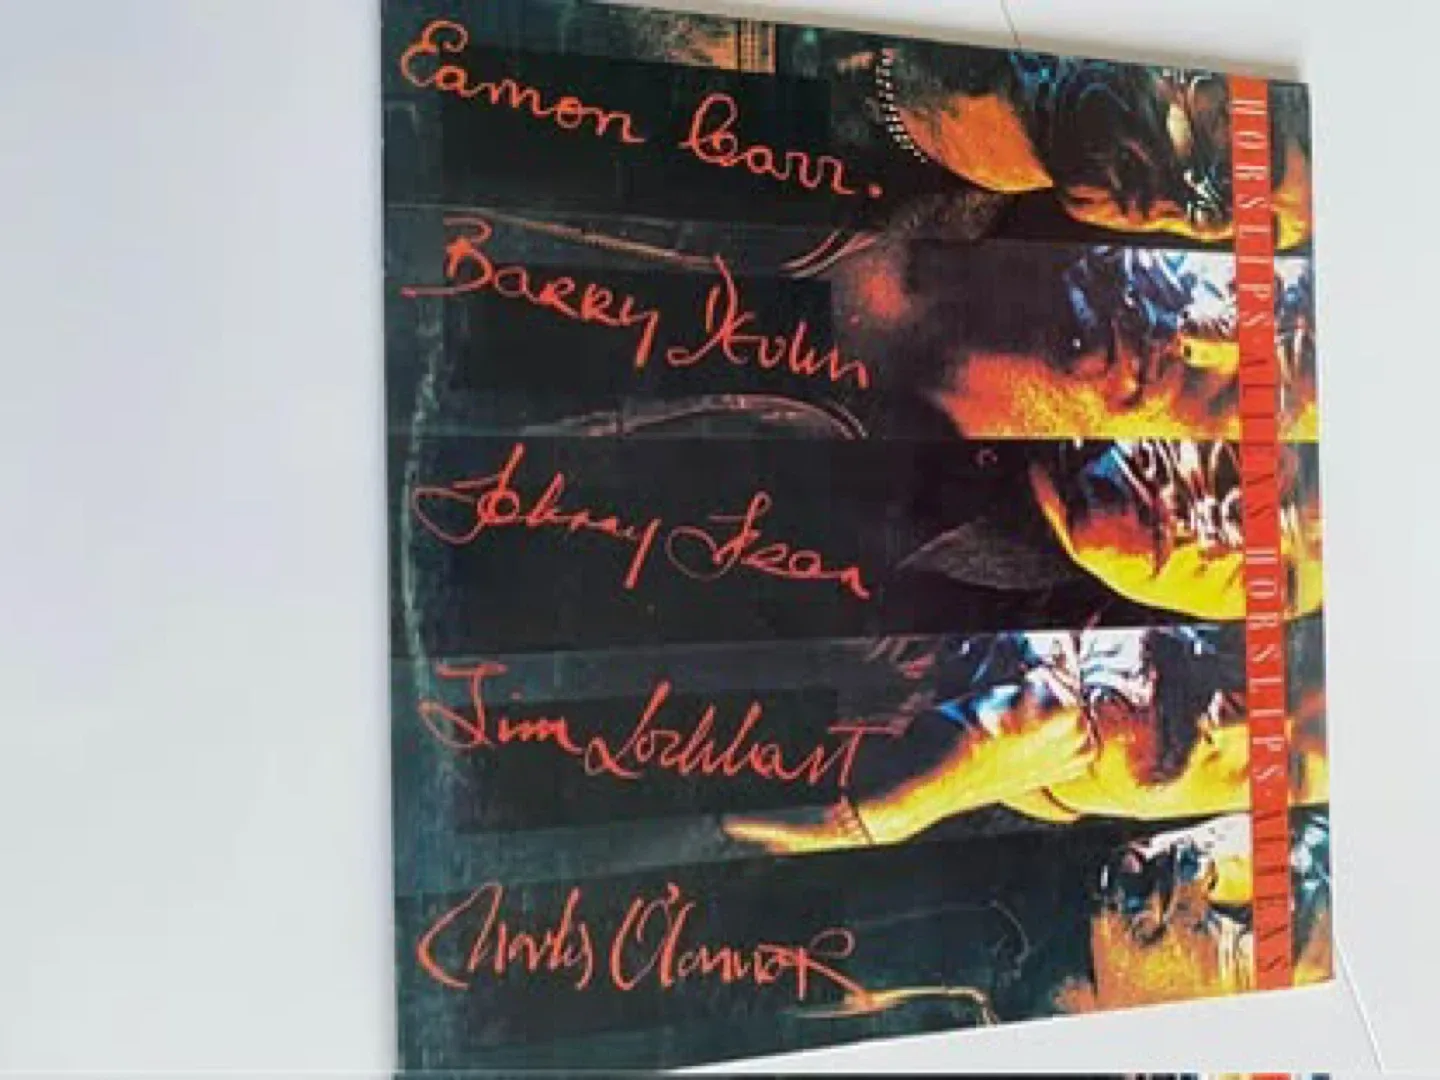 Eamon Carr.
Barry Devlin
Johnny Fean
Jim Lockhart
Charles O'Connor
HORSLIPS·ALIENS HORSLIPS·ALIENS